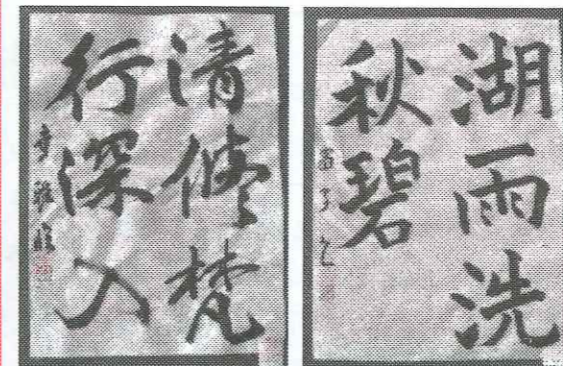 清修梵
行深入
湖雨洗
秋碧